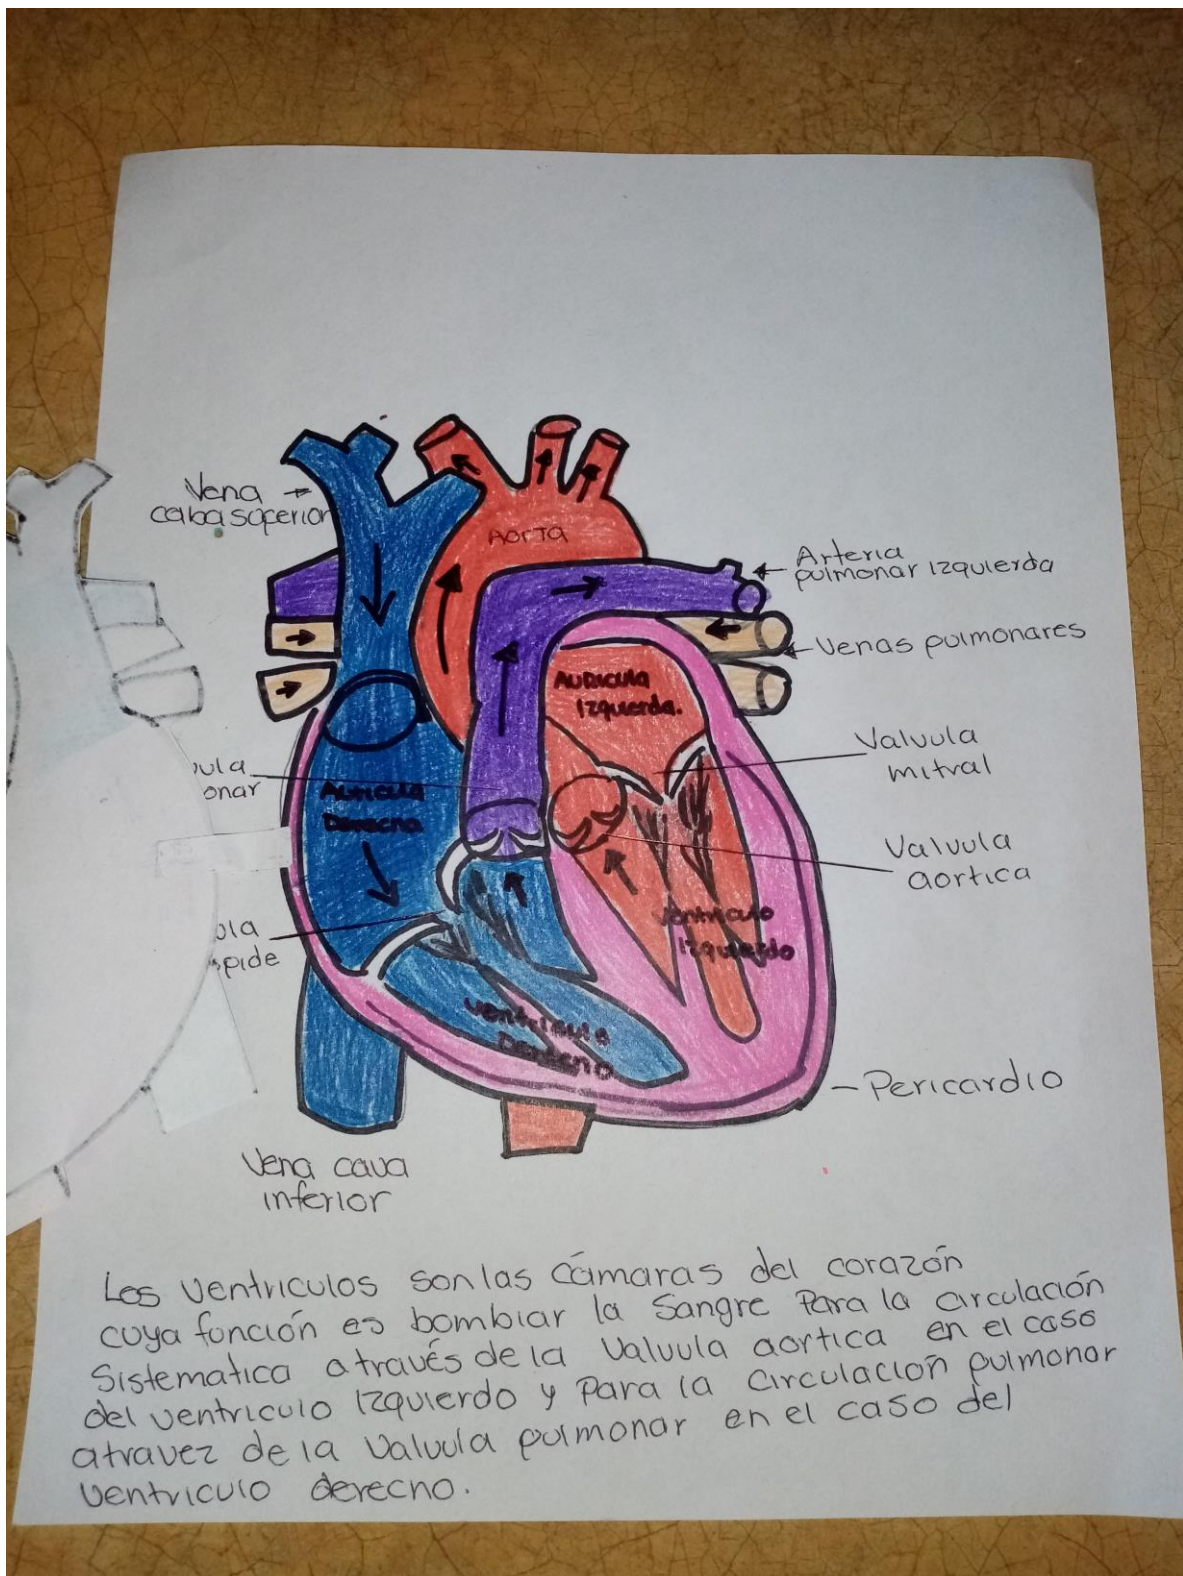 Vena
caba soperior
AORTA
Arteria
pulmonar izquierda
Venas pulmonares
Auricula
Izquierda.
Valvula
mitral
ula
onar
Auricula
Derecho
Valvula
aortica
Ventriculo
Izquierdo
ula
spide
Ventriculo
Derecho
Pericardio
Vena cava
inferior
Los ventriculos son las cámaras del corazón
cuya función es bombiar la Sangre Para la circulación
Sistematica através de la Valvula aortica en el caso
del ventriculo Izquierdo y Para la circulación pulmonar
atravez de la Valvula pulmonar en el caso del
ventriculo derecho.